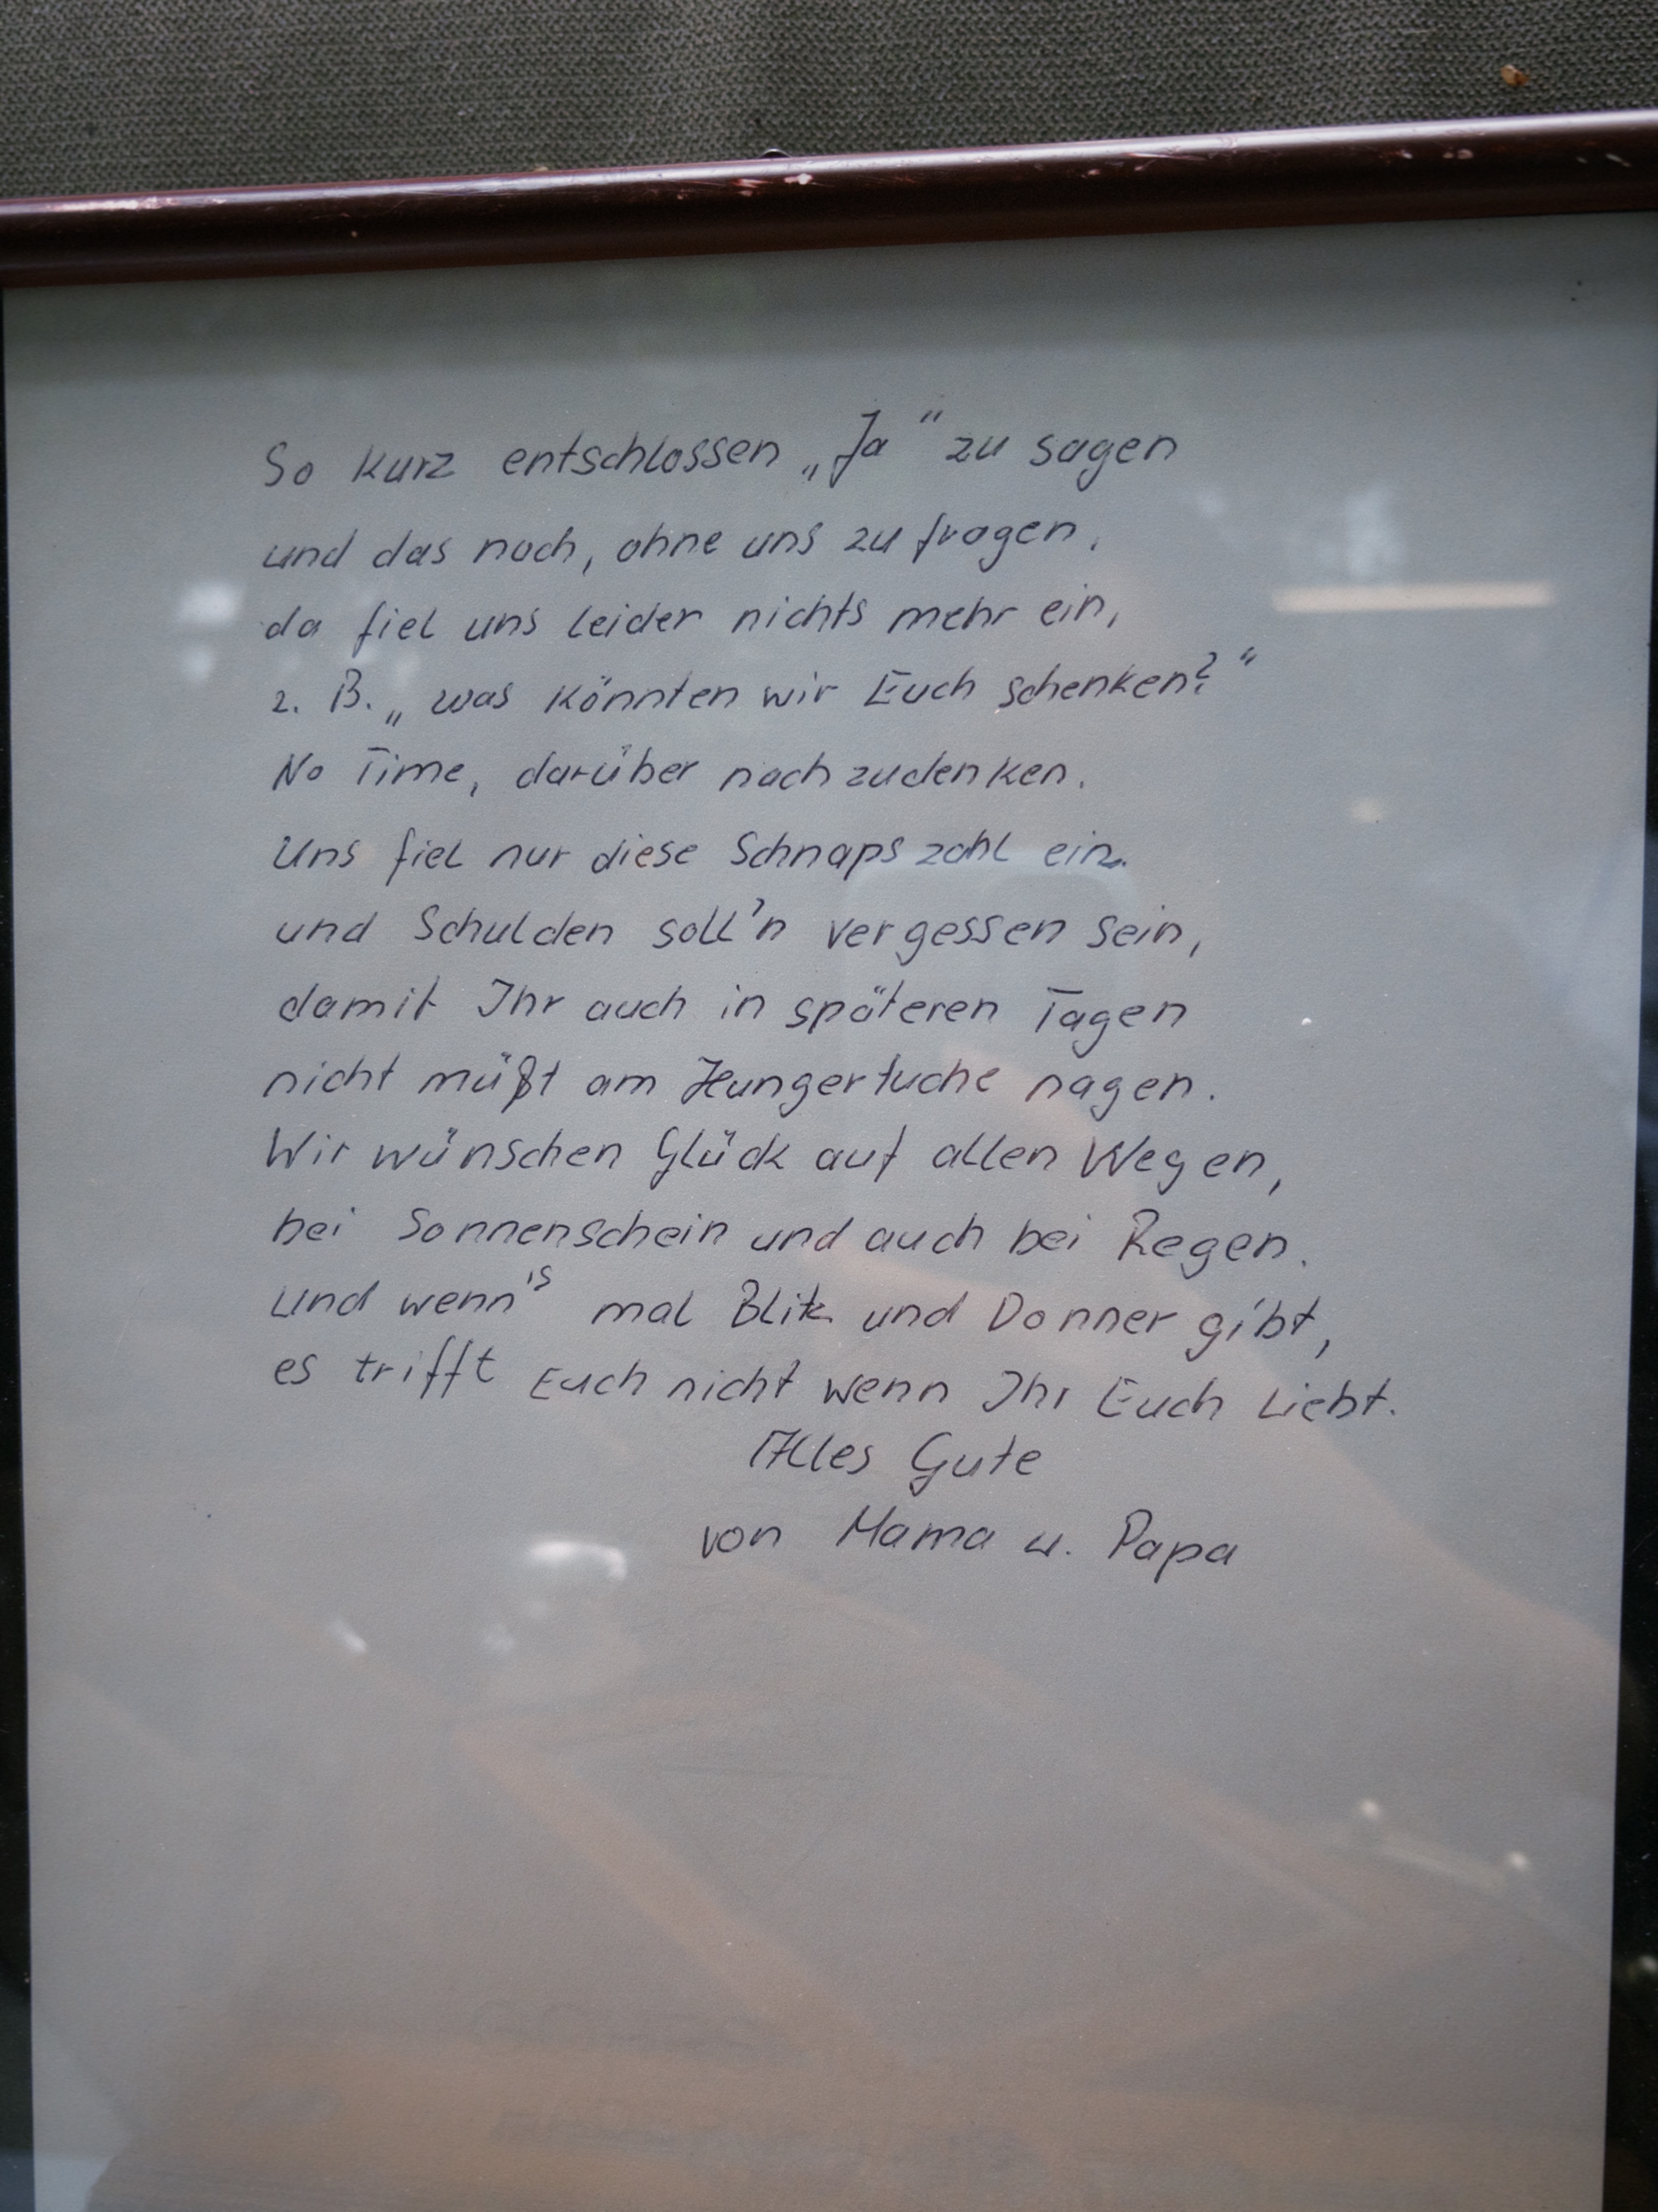 So kurz entschlossen „Ja" zu sagen
und das noch, ohne uns zu fragen,
da fiel uns leider nichts mehr ein,
z. B. „was könnten wir Euch schenken?"
No Time, darüber nachzudenken.
Uns fiel nur diese Schnapszahl ein.
und Schulden soll'n vergessen sein,
damit Ihr auch in späteren Tagen
nicht müßt am Hungertuche nagen.
Wir wünschen Glück auf allen Wegen,
bei Sonnenschein und auch bei Regen.
Und wenn's mal Blitz und Donner gibt,
es trifft Euch nicht wenn Ihr Euch Liebt.
Alles Gute
von Mama u. Papa